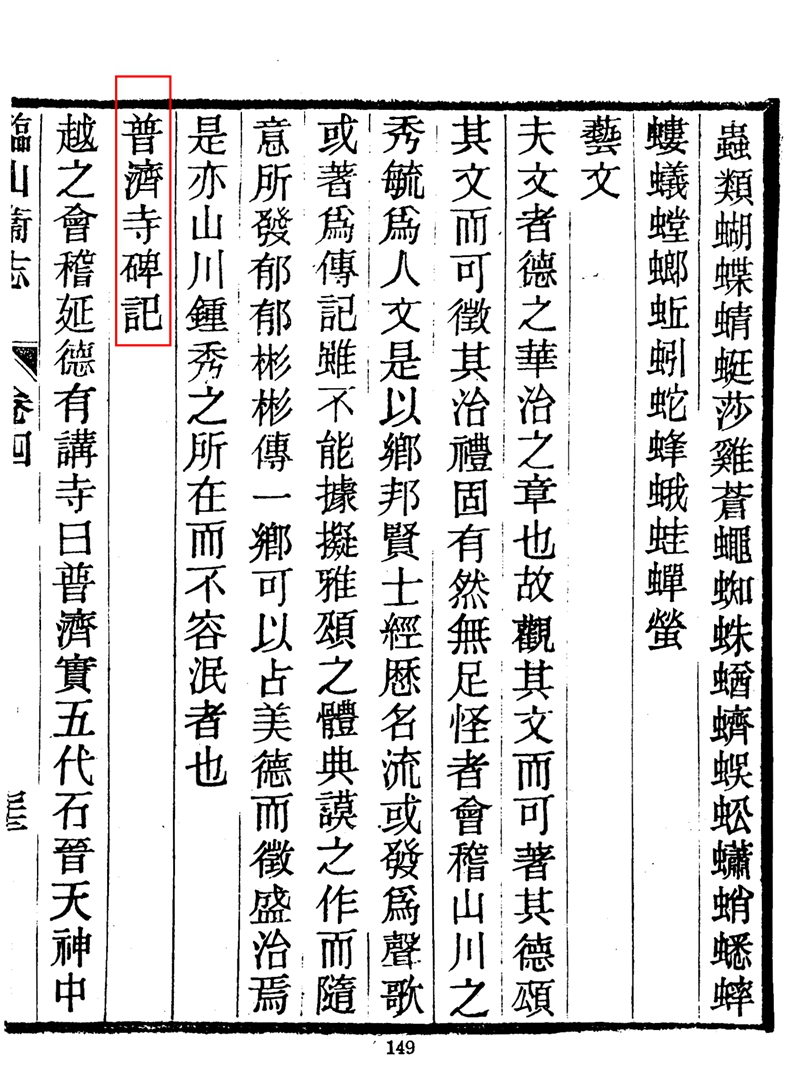 蟲類蝴蝶蜻蜓莎雞蒼蠅蜘蛛蝤蠐蜈蚣蠨蛸蟋蟀
螻蟻螳螂蚯蚓蛇蜂蛾蛙蟬螢
藝文
夫文者德之華治之章也故觀其文而可著其德頌
其文而可徵其治禮固有然無足怪者會稽山川之
秀毓爲人文是以鄉邦賢士經歷名流或發爲聲歌
或著爲傳記雖不能據擬雅頌之體典謨之作而隨
意所發郁郁彬彬傳一鄉可以占美德而徵盛治焉
是亦山川鍾秀之所在而不容泯者也
普濟寺碑記
越之會稽延德有講寺曰普濟實五代石晉天神中
臨山衛志
卷四
149